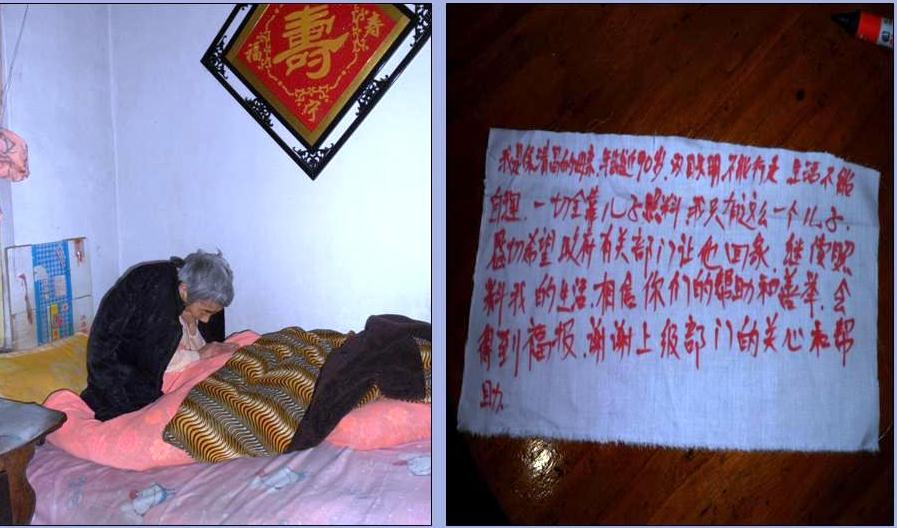 壽
福
寿
我是的母亲,年龄近90岁,双目失明,不能行走 生活不能
自理.一切全靠儿子照料 我只有这么一个儿子.
恳切希望政府有关部门让他回家.继续照
料我的生活.相信你们的帮助和善举.会
得到福报.谢谢上级部门的关心和帮
助.